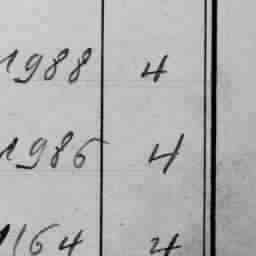 1988 4
1986 4
1164 4